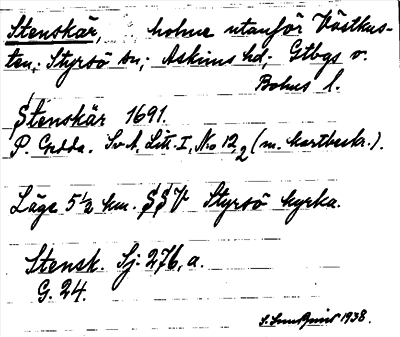 Stenskär, holme utanför Västkus-
ten; Styrsö sn; Askims hd; Gtbgs o.
Bohus l.
Stenskär 1691.
P. Gedda. Sv. A, Litt. I, No 12, 2 (m. kartbeskr.).
Läge 5 1/2 km. SSV Styrsö kyrka.
Stensk. Sj. 276, a.
G. 24.
1938.